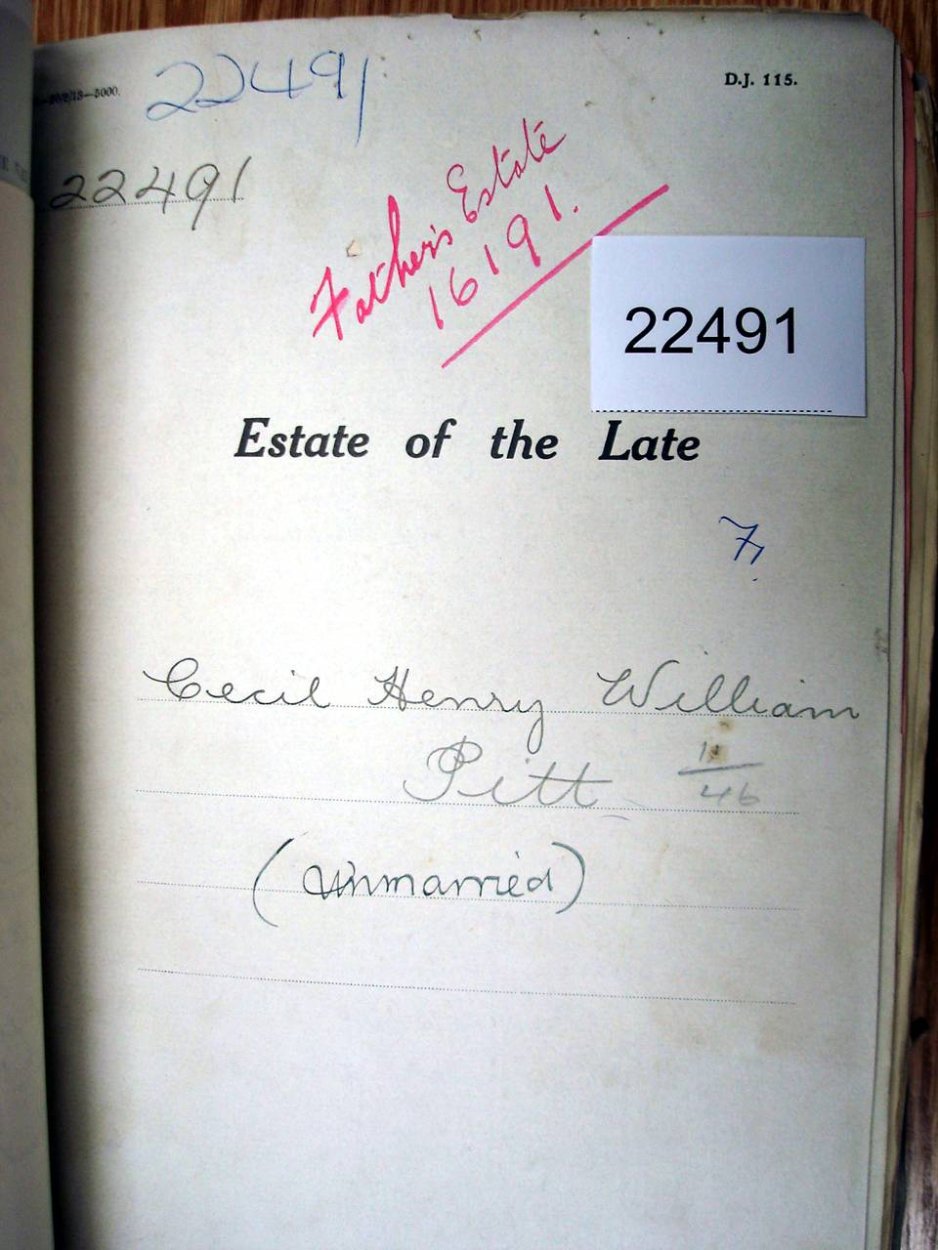 22491
D.J. 115.
22491
Father's Estate
16191.
22491
Estate of the Late
7,
Cecil Henry William
Pitt
11
46
(Unmarried)